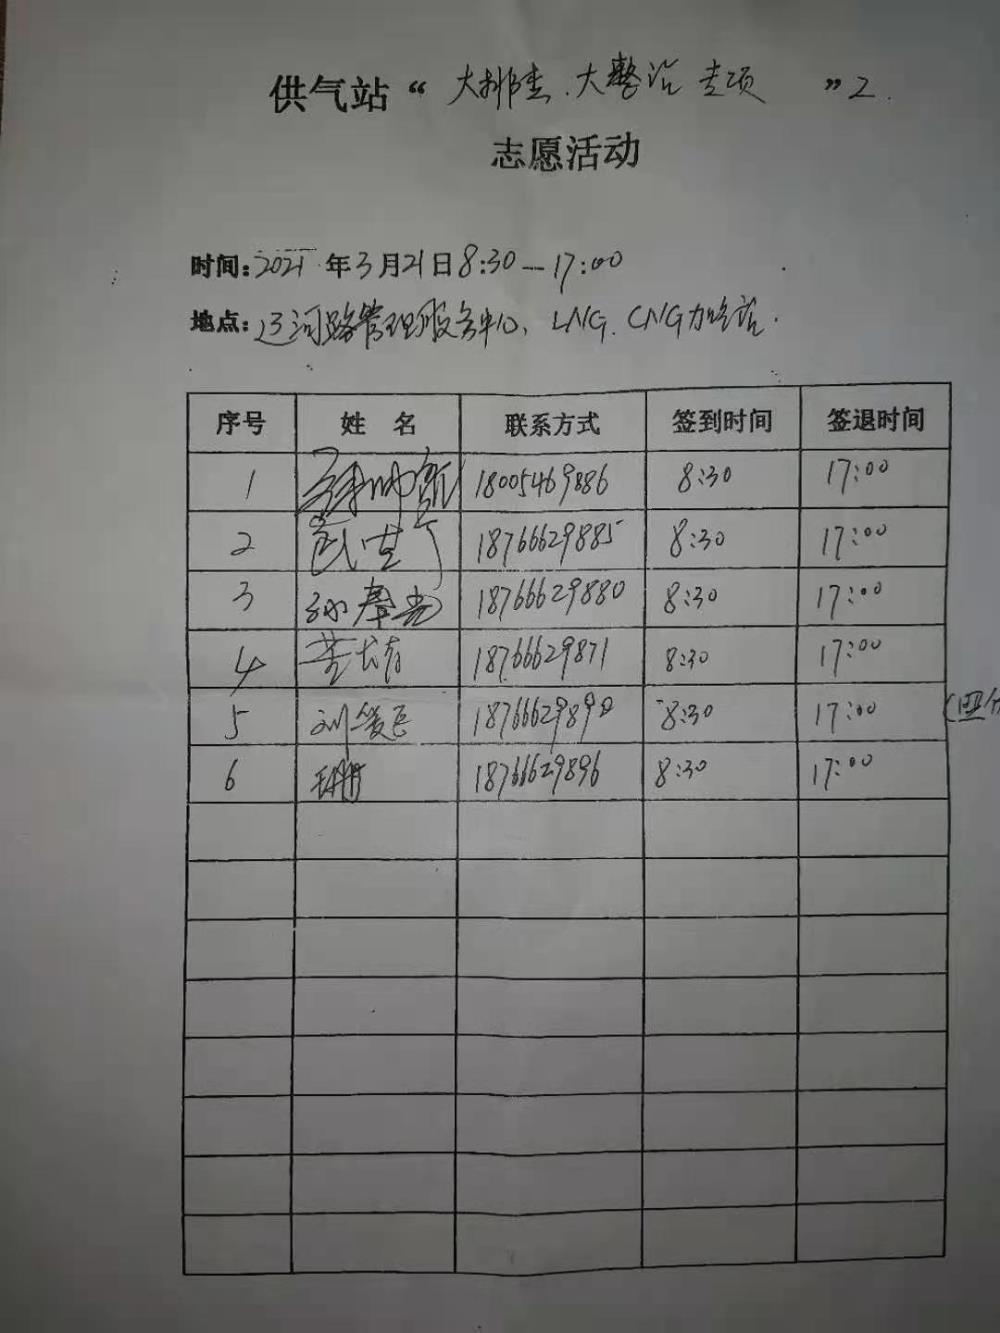 供气站“大排查、大整治专项”2.
志愿活动
时间:2021年3月21日8:30—17:00
地点:辽河路管理服务中心、LNG、CNG加
序号 姓 名 联系方式 签到时间 签退时间
1 18005469886 8:30 17:00
2 18766629885 8:30 17:00
3 孙 18766629880 8:30 17:00
4 18766629871 8:30 17:00
5 刘 18766629890 8:30 17:00
6 18766629896 8:30 17:00